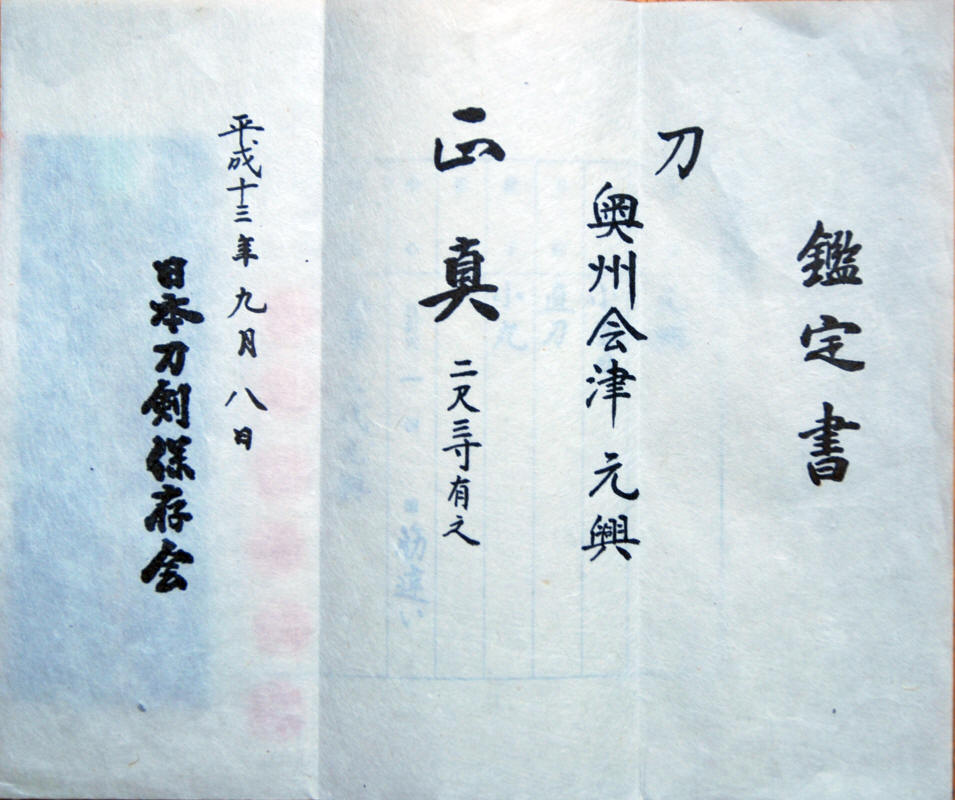 鑑定書
刀
奥州会津元興
正真
二尺三寸有之
平成十三年九月八日
日本刀剣保存会